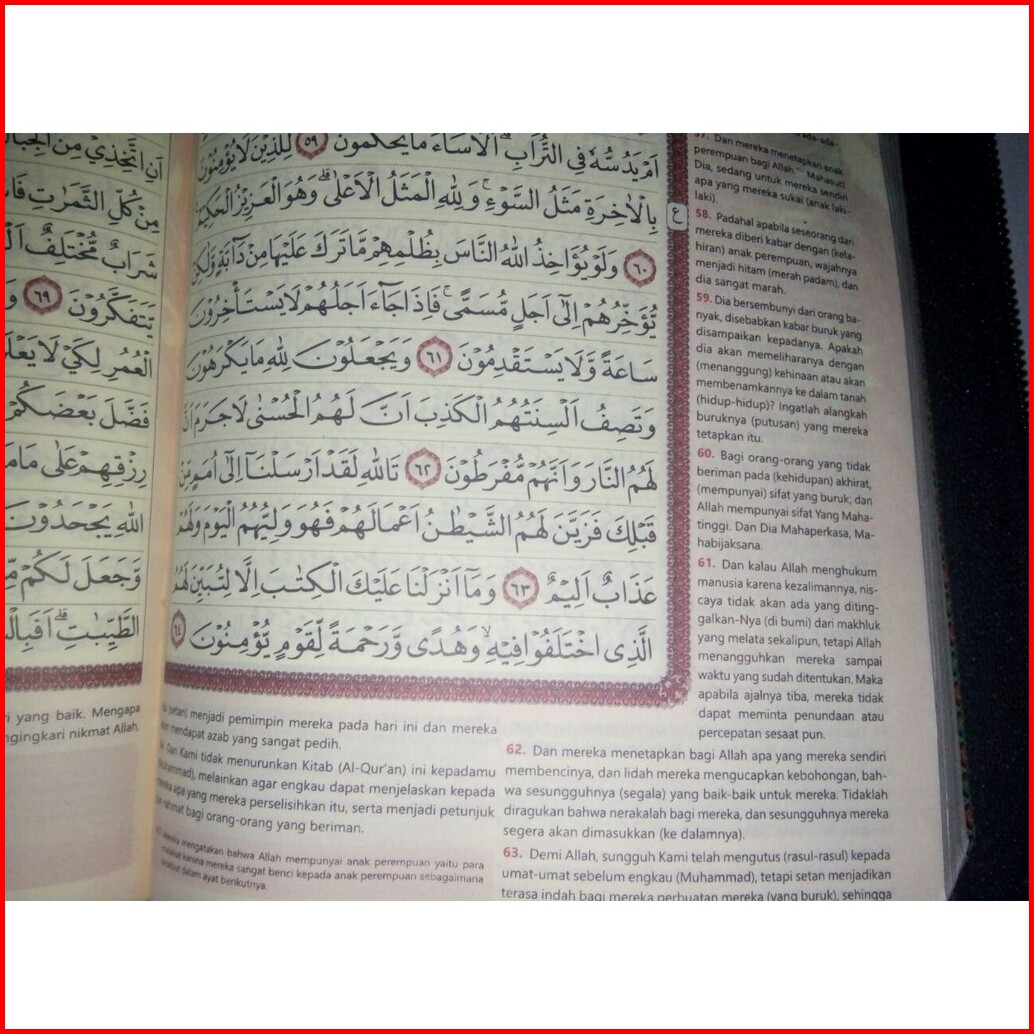 اَمْ يَدُسُّهٗ فِى التُّرَابِۗ اَلَا سَاۤءَ مَا يَحْكُمُوْنَ ٥٩ لِلَّذِيْنَ لَا يُؤْمِنُوْنَ
بِالْاٰخِرَةِ مَثَلُ السَّوْءِۚ وَلِلّٰهِ الْمَثَلُ الْاَعْلٰىۗ وَهُوَ الْعَزِيْزُ الْحَكِيْمُ
٦٠ وَلَوْ يُؤَاخِذُ اللّٰهُ النَّاسَ بِظُلْمِهِمْ مَّا تَرَكَ عَلَيْهَا مِنْ دَاۤبَّةٍ وَّلٰكِنْ
يُّؤَخِّرُهُمْ اِلٰٓى اَجَلٍ مُّسَمًّىۚ فَاِذَا جَاۤءَ اَجَلُهُمْ لَا يَسْتَأْخِرُوْنَ
سَاعَةً وَّلَا يَسْتَقْدِمُوْنَ ٦١ وَيَجْعَلُوْنَ لِلّٰهِ مَا يَكْرَهُوْنَ
وَتَصِفُ اَلْسِنَتُهُمُ الْكَذِبَ اَنَّ لَهُمُ الْحُسْنٰى لَا جَرَمَ اَنَّ
لَهُمُ النَّارَ وَاَنَّهُمْ مُّفْرَطُوْنَ ٦٢ تَاللّٰهِ لَقَدْ اَرْسَلْنَآ اِلٰٓى اُمَمٍ مِّنْ
قَبْلِكَ فَزَيَّنَ لَهُمُ الشَّيْطٰنُ اَعْمَالَهُمْ فَهُوَ وَلِيُّهُمُ الْيَوْمَ وَلَهُمْ
عَذَابٌ اَلِيْمٌ ٦٣ وَمَآ اَنْزَلْنَا عَلَيْكَ الْكِتٰبَ اِلَّا لِتُبَيِّنَ لَهُمُ
الَّذِى اخْتَلَفُوْا فِيْهِۙ وَهُدًى وَّرَحْمَةً لِّقَوْمٍ يُّؤْمِنُوْنَ ٦٤
ع
57. Dan mereka menetapkan anak
perempuan bagi Allah. Mahasuci
Dia, sedang untuk mereka sendiri
apa yang mereka sukai (anak laki-
laki).
58. Padahal apabila seseorang dari
mereka diberi kabar dengan (kela-
hiran) anak perempuan, wajahnya
menjadi hitam (merah padam), dan
dia sangat marah.
59. Dia bersembunyi dari orang ba-
nyak, disebabkan kabar buruk yang
disampaikan kepadanya. Apakah
dia akan memeliharanya dengan
(menanggung) kehinaan atau akan
membenamkannya ke dalam tanah
(hidup-hidup)? Ingatlah alangkah
buruknya (putusan) yang mereka
tetapkan itu.
60. Bagi orang-orang yang tidak
beriman pada (kehidupan) akhirat,
(mempunyai) sifat yang buruk; dan
Allah mempunyai sifat Yang Maha-
tinggi. Dan Dia Mahaperkasa, Ma-
habijaksana.
61. Dan kalau Allah menghukum
manusia karena kezalimannya, nis-
caya tidak akan ada yang diting-
galkan-Nya (di bumi) dari makhluk
yang melata sekalipun, tetapi Allah
menangguhkan mereka sampai
waktu yang sudah ditentukan. Maka
apabila ajalnya tiba, mereka tidak
dapat meminta penundaan atau
percepatan sesaat pun.
62. Dan mereka menetapkan bagi Allah apa yang mereka sendiri
membencinya, dan lidah mereka mengucapkan kebohongan, bah-
wa sesungguhnya (segala) yang baik-baik untuk mereka. Tidaklah
diragukan bahwa nerakalah bagi mereka, dan sesungguhnya mereka
segera akan dimasukkan (ke dalamnya).
63. Demi Allah, sungguh Kami telah mengutus (rasul-rasul) kepada
umat-umat sebelum engkau (Muhammad), tetapi setan menjadikan
terasa indah bagi mereka perbuatan mereka (yang buruk), sehingga
(setan) menjadi pemimpin mereka pada hari ini dan mereka
mendapat azab yang sangat pedih.
Dan Kami tidak menurunkan Kitab (Al-Qur'an) ini kepadamu
(Muhammad), melainkan agar engkau dapat menjelaskan kepada
mereka apa yang mereka perselisihkan itu, serta menjadi petunjuk
rahmat bagi orang-orang yang beriman.
mereka mengatakan bahwa Allah mempunyai anak perempuan yaitu para
malaikat karena mereka sangat benci kepada anak perempuan sebagaimana
tersebut dalam ayat berikutnya.
اَنِ اتَّخِذِيْ مِنَ
مِنْ كُلِّ الثَّمَرٰتِ
شَرَابٌ مُّخْتَلِفٌ
يَّتَفَكَّرُوْنَ ٦٩
الْعُمُرِ لِكَيْ لَا
فَضَّلَ بَعْضَكُمْ
رِزْقِهِمْ عَلٰى مَا
اللّٰهِ يَجْحَدُوْنَ
وَّجَعَلَ لَكُمْ
الطَّيِّبٰتِۗ
yang baik. Mengapa
nikmat Allah.